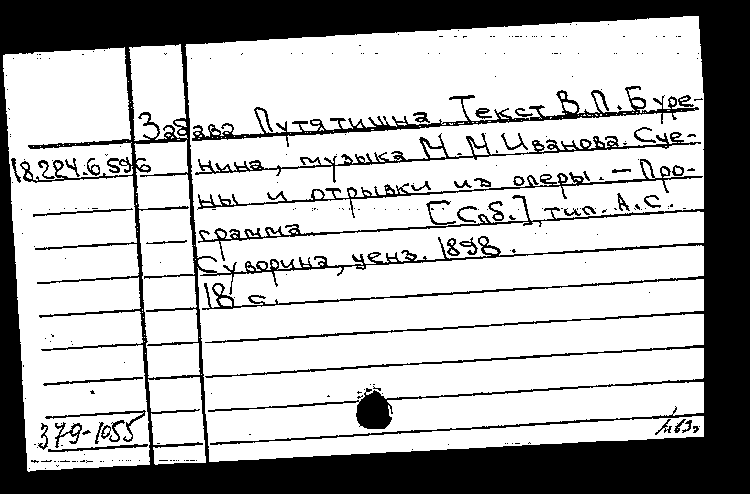 Забава Путятишна. Текст В.П.Буре-
18.224.6.596 нина, музыка М.М.Иванова. Сце-
ны и отрывки из оперы. — Про-
грамма. [Спб.], тип. А.С.
Суворина, ценз. 1898.
18 с.
379-1055